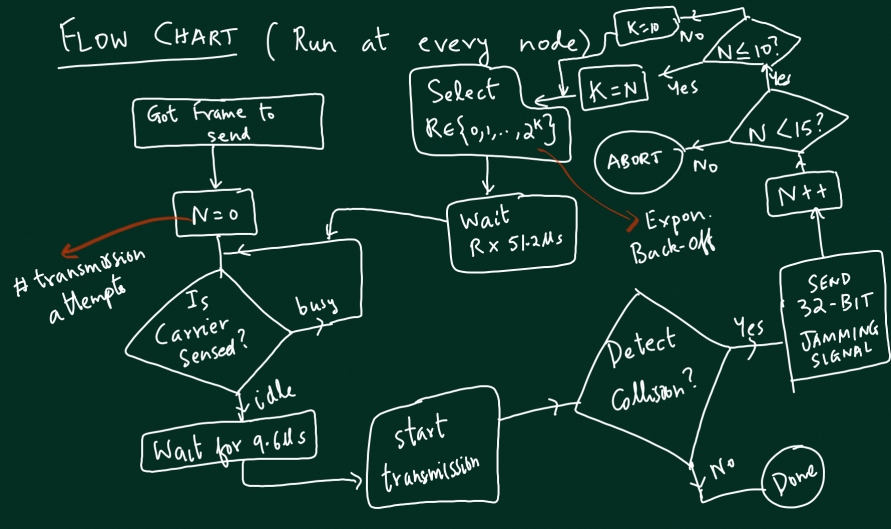 FLOW CHART ( Run at every node)
Got Frame to
send
N=0
# transmission
attempts
Is
Carrier
Sensed?
busy
idle
Wait for 9.6μs
start
transmission
Detect
Collision?
Yes
No
Done
SEND
32-BIT
JAMMING
SIGNAL
N++
N <15?
No
ABORT
Yes
N≤10?
No
K=10
Yes
K=N
Select
R∈{0,1,..,2^K}
Expon.
Back-off
Wait
R x 51.2μs